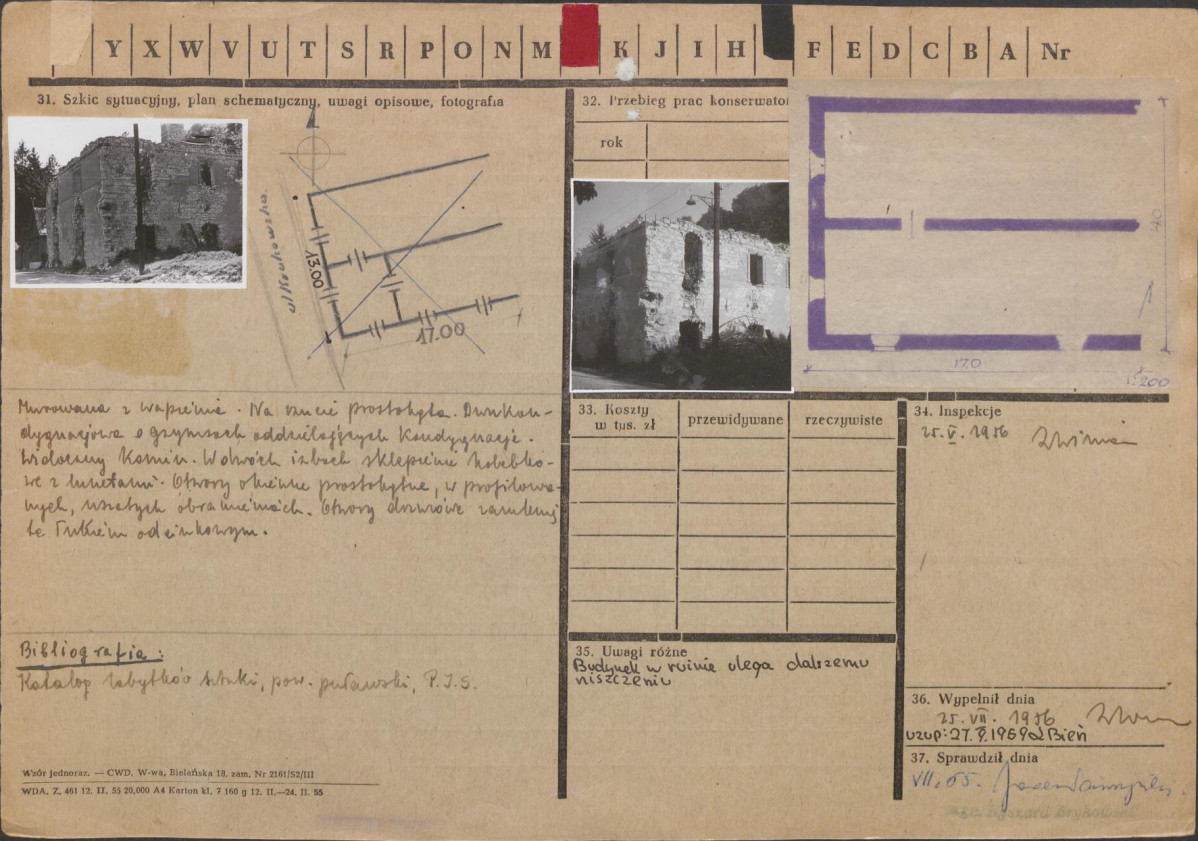 Y X W V U T S R P O N M K J I H F E D C B A Nr
31. Szkic sytuacyjny, plan schematyczny, uwagi opisowe, fotografia
ul Krakowska
13.00
17.00
Murowana z wapienia. Na rzucie prostokąta. Dwukon-
dygnacjowa o gzymsach oddzielających kondygnacje.
Widoczny komin. W dwóch izbach sklepienie kolebko-
we z lunetami. Otwory okienne prostokątne, w profilowa-
nych, uszatych obramieniach. Otwory drzwiowe zamknię
te łukiem odcinkowym.
Bibliografia:
Katalog zabytków sztuki, pow. puławski, P.I.S.
Wzór jednoraz. — CWD. W-wa, Bielańska 18, zam. Nr 2161/52/III
WDA. Z. 461 12. II. 55 20,000 A4 Karton kl. 7 160 g 12. II.—24. II. 55
32. Przebieg prac konserwato
rok
14.0
17.0
1:200
33. Koszty
w tys. zł
przewidywane
rzeczywiste
34. Inspekcje
25. V. 1956
35. Uwagi różne
Budynek w ruinie ulega dalszemu
niszczeniu
36. Wypełnił dnia
25. VII. 1956
uzup: 27. V. 1959 Bień
37. Sprawdził dnia
VII. 65.
mgr Ryszard Brykowski